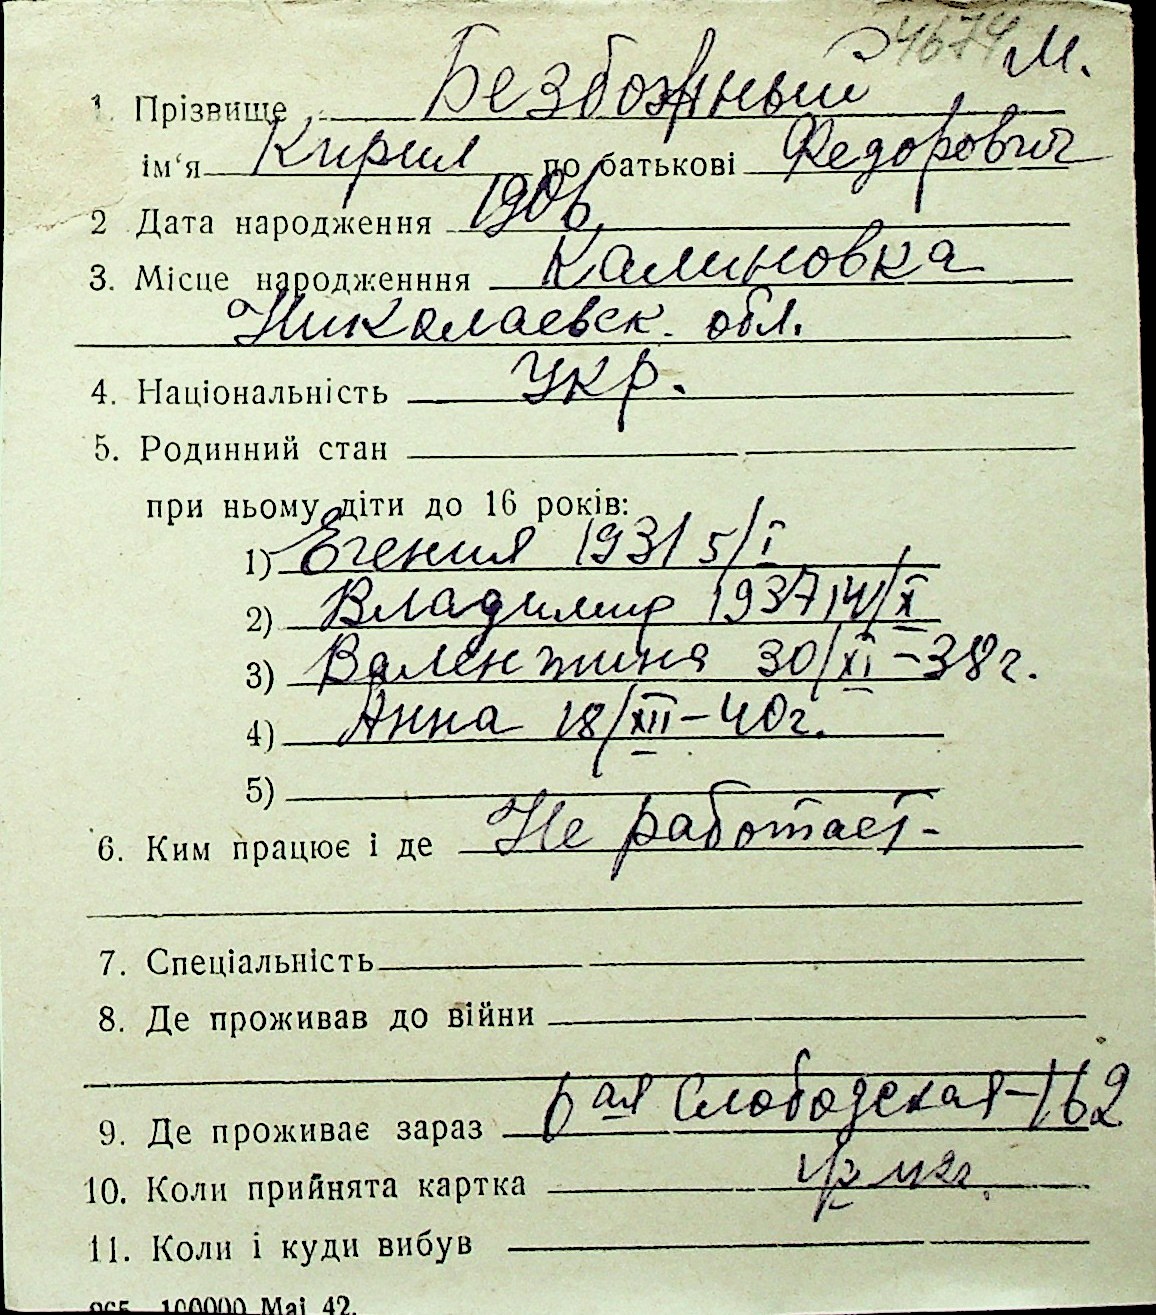 4674 М.
1. Прізвище Безбожный
ім'я Кирил по батькові Федорович
2 Дата народження 1906
3. Місце народженння Калиновка
Николаевск. обл.
4. Національність Укр.
5. Родинний стан
при ньому діти до 16 років:
1) Егения 1931 5/I
2) Владимир 1937 14/X
3) Валентина 30/XI-38г.
4) Анна 18/XII-40г.
5)
6. Ким працює і де Не работает-
7. Спеціальність
8. Де проживав до війни
9. Де проживає зараз 6ая Слободская-162
10. Коли прийнята картка
11. Коли і куди вибув
965 100000 Mai 42.